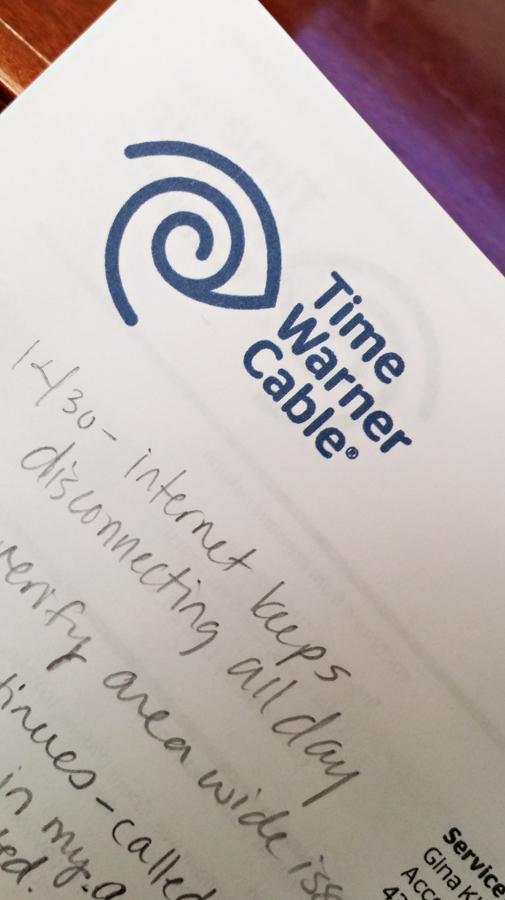 Time
Warner
Cable®
12/30- internet keeps
disconnecting all day
verify area wide
called
in my
Service
Gina